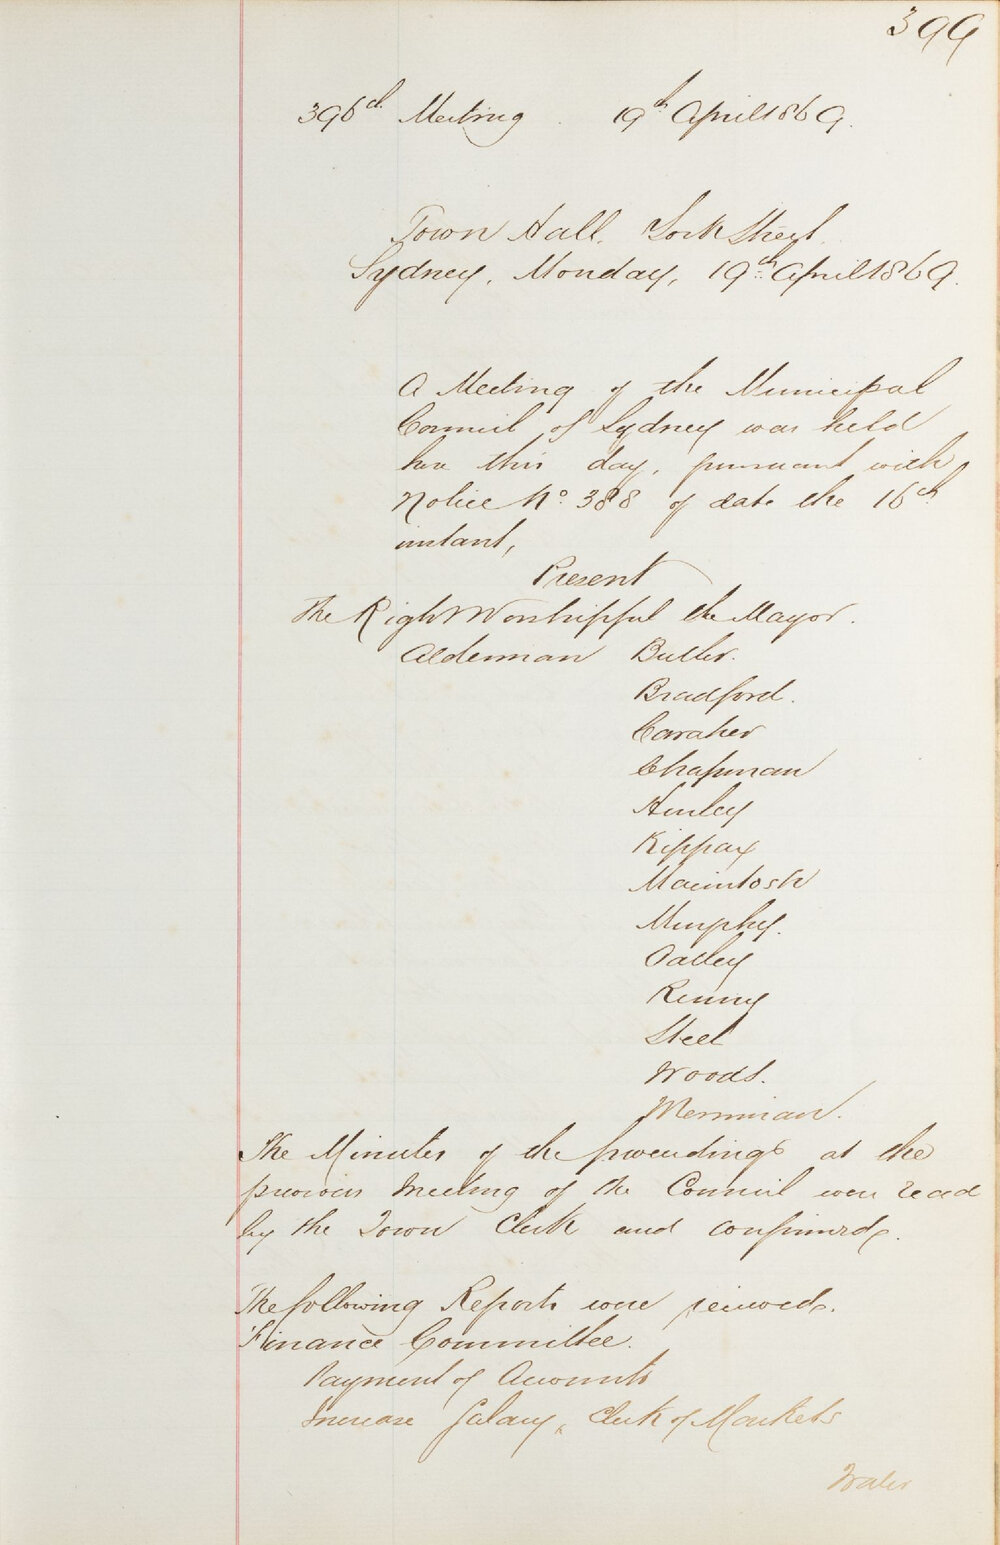 399
396th Meeting 19th April 1869.
Town Hall, York Street.
Sydney, Monday, 19th April 1869.
A Meeting of the Municipal
Council of Sydney was held
here this day, pursuant with
Notice No. 388 of date the 16th
instant,
Present
The Right Worshipful the Mayor.
Alderman Butler.
Bradford.
Caraher
Chapman
Hurley
Kippax
Macintosh
Murphy.
Oatley
Renny
Steel
Woods.
Merriman.
The Minutes of the proceedings at the
previous Meeting of the Council were read
by the Town Clerk and confirmed.
The following Reports were received.
Finance Committee.
Payment of Accounts
Increase Salary, Clerk of Markets
Water